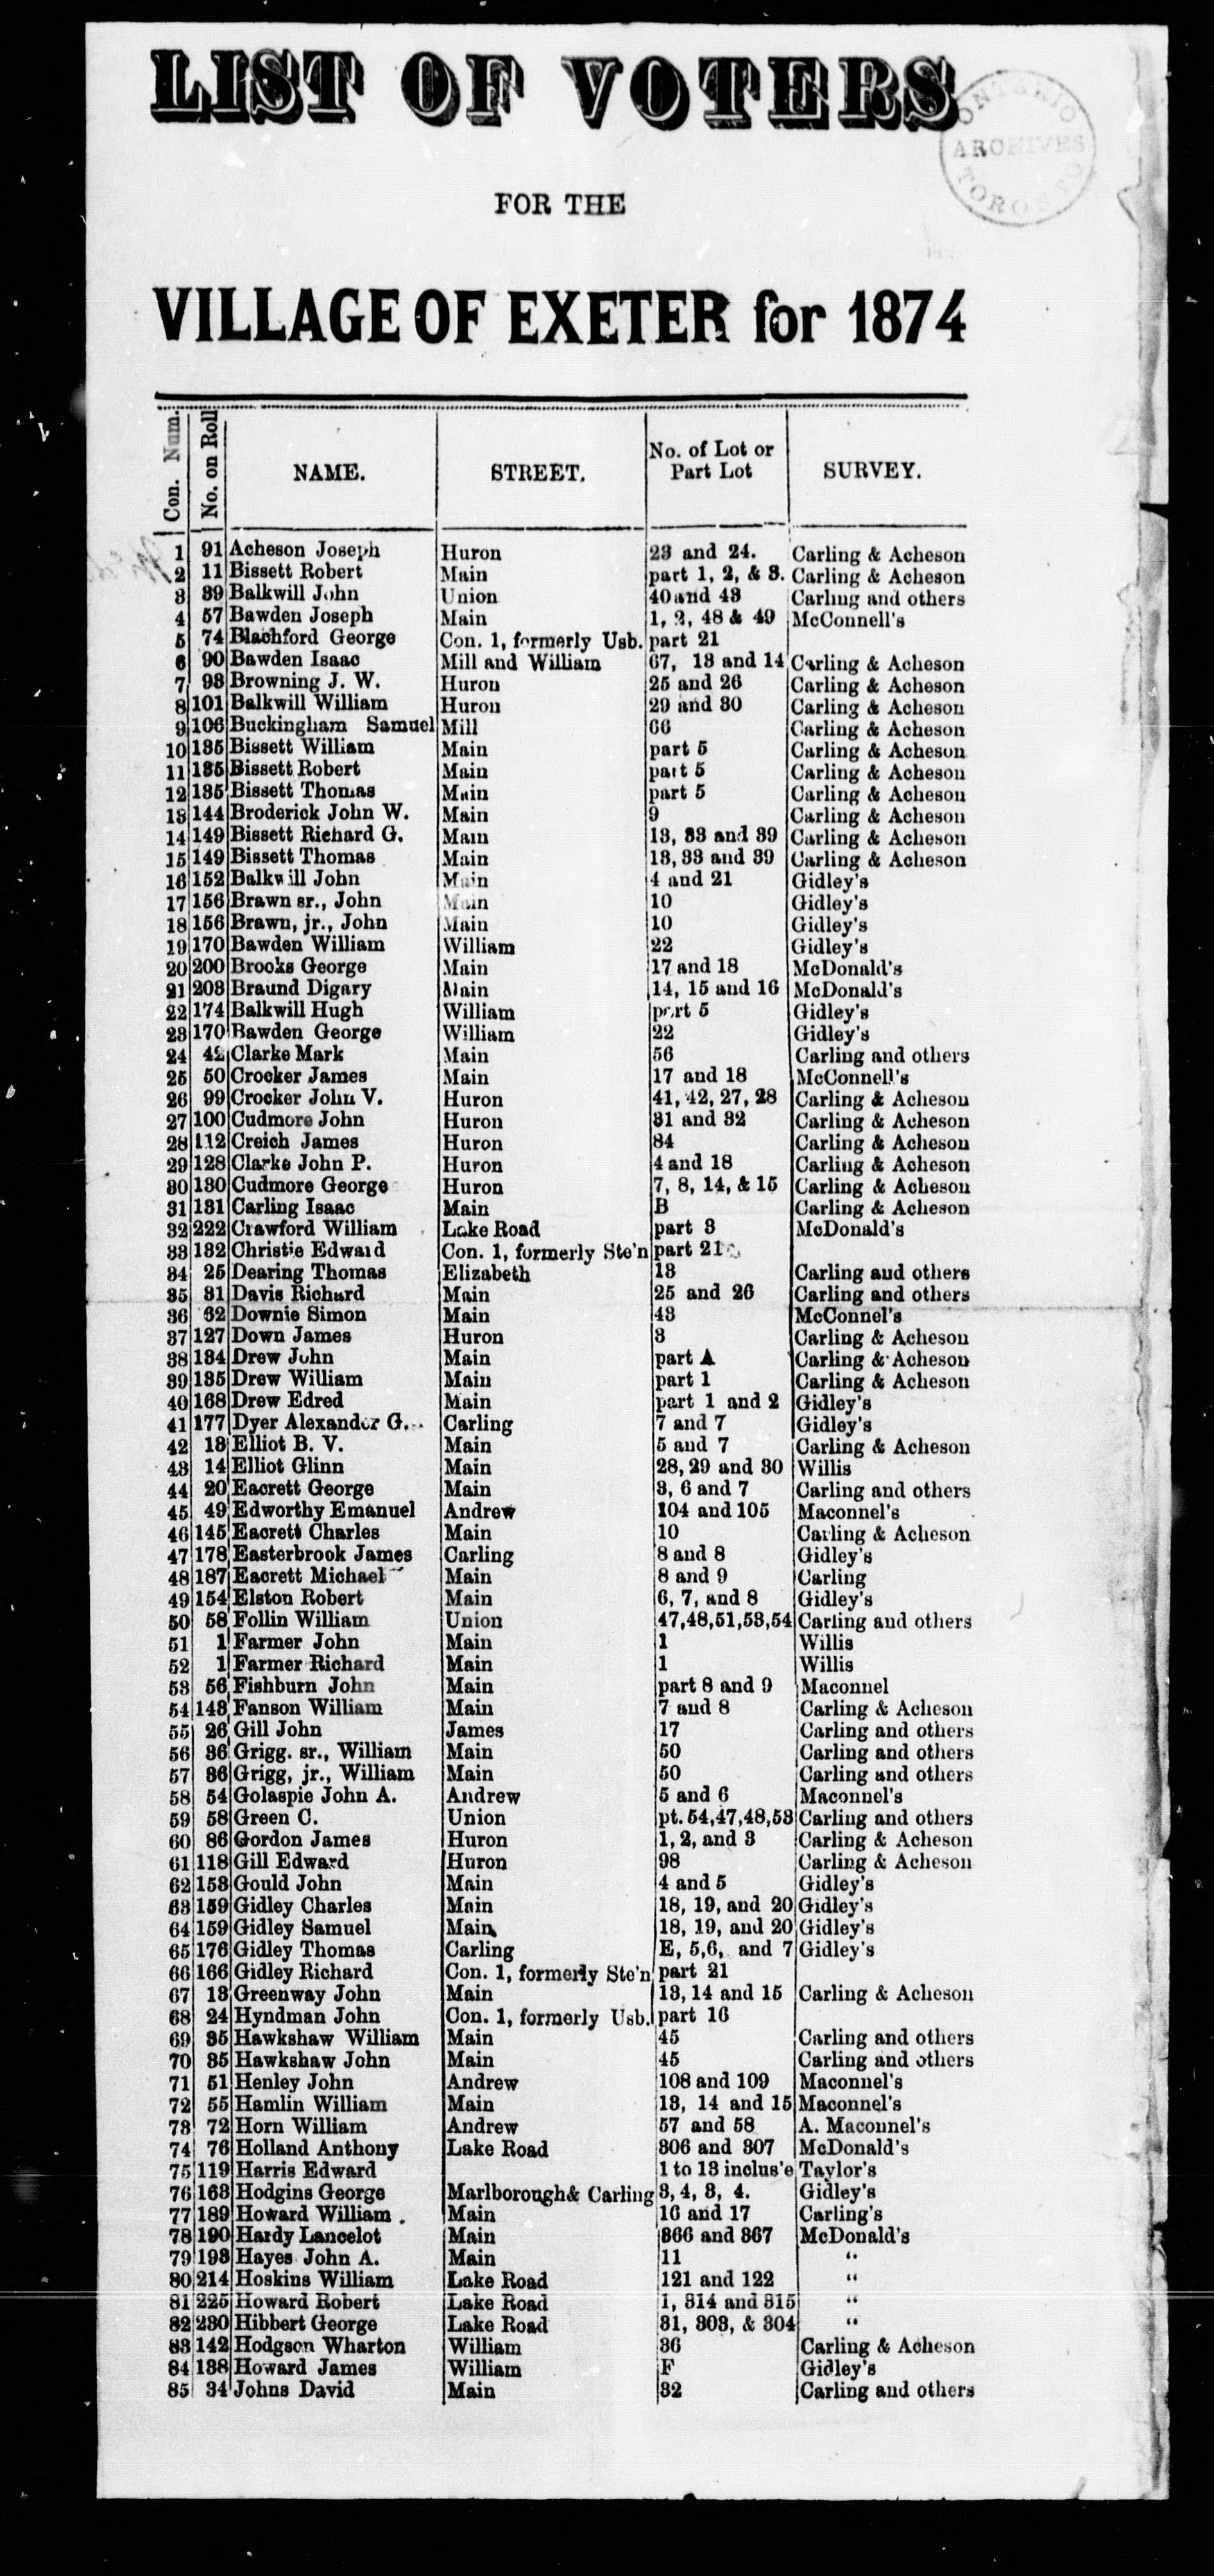 LIST OF VOTERS
ONTARIO
ARCHIVES
TORONTO
FOR THE
VILLAGE OF EXETER for 1874
Con. Num. No. on Roll NAME. STREET. No. of Lot or Part Lot SURVEY.
1 91 Acheson Joseph Huron 23 and 24. Carling & Acheson
2 11 Bissett Robert Main part 1, 2, & 3. Carling & Acheson
3 39 Balkwill John Union 40 and 43 Carling and others
4 57 Bawden Joseph Main 1, 2, 48 & 49 McConnell's
5 74 Blachford George Con. 1, formerly Usb. part 21
6 90 Bawden Isaac Mill and William 67, 13 and 14 Carling & Acheson
7 98 Browning J. W. Huron 25 and 26 Carling & Acheson
8 101 Balkwill William Huron 29 and 30 Carling & Acheson
9 106 Buckingham Samuel Mill 66 Carling & Acheson
10 135 Bissett William Main part 5 Carling & Acheson
11 135 Bissett Robert Main part 5 Carling & Acheson
12 135 Bissett Thomas Main part 5 Carling & Acheson
13 144 Broderick John W. Main 9 Carling & Acheson
14 149 Bissett Richard G. Main 13, 33 and 39 Carling & Acheson
15 149 Bissett Thomas Main 13, 33 and 39 Carling & Acheson
16 152 Balkwill John Main 4 and 21 Gidley's
17 156 Brawn sr., John Main 10 Gidley's
18 156 Brawn, jr., John Main 10 Gidley's
19 170 Bawden William William 22 Gidley's
20 200 Brooks George Main 17 and 18 McDonald's
21 203 Braund Digary Main 14, 15 and 16 McDonald's
22 174 Balkwill Hugh William part 5 Gidley's
23 170 Bawden George William 22 Gidley's
24 42 Clarke Mark Main 56 Carling and others
25 50 Crocker James Main 17 and 18 McConnell's
26 99 Crocker John V. Huron 41, 42, 27, 28 Carling & Acheson
27 100 Cudmore John Huron 31 and 32 Carling & Acheson
28 112 Creich James Huron 84 Carling & Acheson
29 128 Clarke John P. Huron 4 and 18 Carling & Acheson
30 130 Cudmore George Huron 7, 8, 14, & 15 Carling & Acheson
31 131 Carling Isaac Main B Carling & Acheson
32 222 Crawford William Lake Road part 3 McDonald's
33 182 Christie Edward Con. 1, formerly Ste'n part 21
34 25 Dearing Thomas Elizabeth 13 Carling and others
35 31 Davis Richard Main 25 and 26 Carling and others
36 62 Downie Simon Main 43 McConnel's
37 127 Down James Huron 3 Carling & Acheson
38 134 Drew John Main part A Carling & Acheson
39 135 Drew William Main part 1 Carling & Acheson
40 168 Drew Edred Main part 1 and 2 Gidley's
41 177 Dyer Alexander G. Carling 7 and 7 Gidley's
42 13 Elliot B. V. Main 5 and 7 Carling & Acheson
43 14 Elliot Glinn Main 28, 29 and 30 Willis
44 20 Eacrett George Main 3, 6 and 7 Carling and others
45 49 Edworthy Emanuel Andrew 104 and 105 Maconnel's
46 145 Eacrett Charles Main 10 Carling & Acheson
47 178 Easterbrook James Carling 8 and 8 Gidley's
48 187 Eacrett Michael Main 8 and 9 Carling
49 154 Elston Robert Main 6, 7, and 8 Gidley's
50 58 Follin William Union 47,48,51,53,54 Carling and others
51 1 Farmer John Main 1 Willis
52 1 Farmer Richard Main 1 Willis
53 56 Fishburn John Main part 8 and 9 Maconnel
54 143 Fanson William Main 7 and 8 Carling & Acheson
55 26 Gill John James 17 Carling and others
56 36 Grigg. sr., William Main 50 Carling and others
57 36 Grigg, jr., William Main 50 Carling and others
58 54 Golaspie John A. Andrew 5 and 6 Maconnel's
59 58 Green C. Union pt. 54,47,48,53 Carling and others
60 86 Gordon James Huron 1, 2, and 3 Carling & Acheson
61 118 Gill Edward Huron 98 Carling & Acheson
62 153 Gould John Main 4 and 5 Gidley's
63 159 Gidley Charles Main 18, 19, and 20 Gidley's
64 159 Gidley Samuel Main 18, 19, and 20 Gidley's
65 176 Gidley Thomas Carling E, 5,6, and 7 Gidley's
66 166 Gidley Richard Con. 1, formerly Ste'n part 21
67 13 Greenway John Main 13, 14 and 15 Carling & Acheson
68 24 Hyndman John Con. 1, formerly Usb. part 16
69 35 Hawkshaw William Main 45 Carling and others
70 35 Hawkshaw John Main 45 Carling and others
71 51 Henley John Andrew 108 and 109 Maconnel's
72 55 Hamlin William Main 13, 14 and 15 Maconnel's
73 72 Horn William Andrew 57 and 58 A. Maconnel's
74 76 Holland Anthony Lake Road 306 and 307 McDonald's
75 119 Harris Edward 1 to 13 inclus'e Taylor's
76 163 Hodgins George Marlborough & Carling 3, 4, 3, 4. Gidley's
77 189 Howard William . Main 16 and 17 Carling's
78 190 Hardy Lancelot Main 366 and 367 McDonald's
79 193 Hayes John A. Main 11 "
80 214 Hoskins William Lake Road 121 and 122 "
81 225 Howard Robert Lake Road 1, 314 and 315 "
82 230 Hibbert George Lake Road 31, 303, & 304 "
83 142 Hodgson Wharton William 36 Carling & Acheson
84 138 Howard James William F Gidley's
85 34 Johns David Main 32 Carling and others